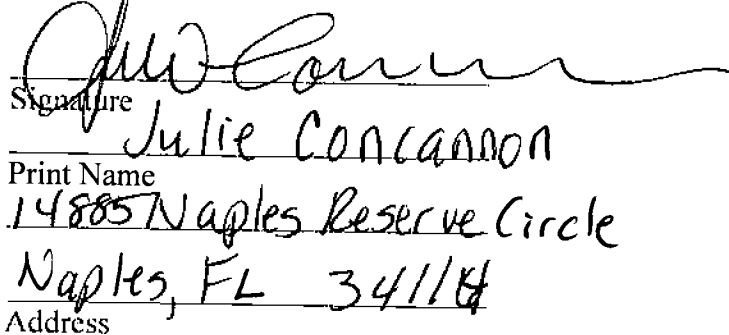 Signature
Julie Concannon
Print Name
14885 Naples Reserve Circle
Naples, FL 34114
Address